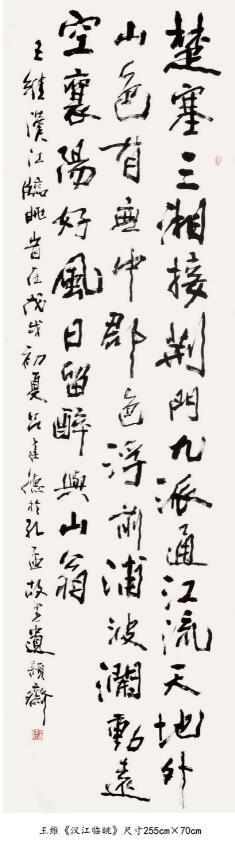 楚塞三湘接荆門九派通江流天地外
山色有無中郡邑浮前浦波瀾動遠
空襄陽好風日留醉與山翁
王維漢江臨眺旹在戊戌初夏吕建德於孔孟故里遺韻齋
王维《汉江临眺》尺寸255cm×70cm